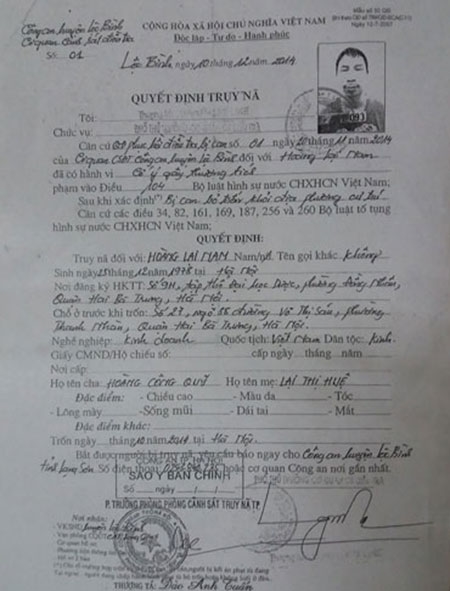 Công an huyện Lộc Bình
Cơ quan Cảnh sát điều tra
Số: 01
CỘNG HÒA XÃ HỘI CHỦ NGHĨA VIỆT NAM
Độc lập - Tự do - Hạnh phúc
Lộc Bình, ngày 10 tháng 12 năm 2014
Mẫu số
Ngày
QUYẾT ĐỊNH TRUY NÃ
Tôi:
Chức vụ:
Căn cứ QĐ phục hồi điều tra bị can số 01 ngày tháng 11 năm 2014
của Cơ quan CSĐT Công an huyện Lộc Bình đối với Hoàng Lại Nam
đã có hành vi Cố ý gây thương tích
phạm vào Điều 104 Bộ luật hình sự nước CHXHCN Việt Nam;
Sau khi xác định Bị can bỏ trốn khỏi địa phương cư trú
Căn cứ các điều 34, 82, 161, 169, 187, 256 và 260 Bộ luật tố tụng
hình sự nước CHXHCN Việt Nam;
QUYẾT ĐỊNH:
Truy nã đối với: HOÀNG LẠI NAM Nam/nữ. Tên gọi khác Không
Sinh ngày tháng 12 năm 1978 tại Hà Nội
Nơi đăng ký HKTT: Số 9H, tập thể Đại học Dược, phường Đồng Nhân,
Quận Hai Bà Trưng, Hà Nội.
Chỗ ở trước khi trốn: Số 23, ngõ đường Võ Thị Sáu, phường
Thanh Nhàn, Quận Hai Bà Trưng, Hà Nội.
Nghề nghiệp: Kinh doanh Quốc tịch: Việt Nam Dân tộc: Kinh.
Giấy CMND/Hộ chiếu số: cấp ngày tháng năm
Nơi cấp:
Họ tên cha HOÀNG CÔNG QUỸ Họ tên mẹ: LẠI THỊ HUỆ
Đặc điểm: - Chiều cao - Màu da - Tóc
- Lông mày - Sống mũi - Dái tai - Mắt
Đặc điểm khác:
Trốn ngày tháng 10 năm 2014 tại Hà Nội.
Bắt được người bị truy nã, yêu cầu báo ngay cho Công an huyện Lộc Bình
tỉnh Lạng Sơn Số điện thoại hoặc cơ quan Công an nơi gần nhất.
SAO Y BẢN CHÍNH
Số ngày / /
P. TRƯỞNG PHÒNG CẢNH SÁT TRUY NÃ TP.
Nơi nhận:
THƯỢNG TÁ: Đào Anh Tuấn